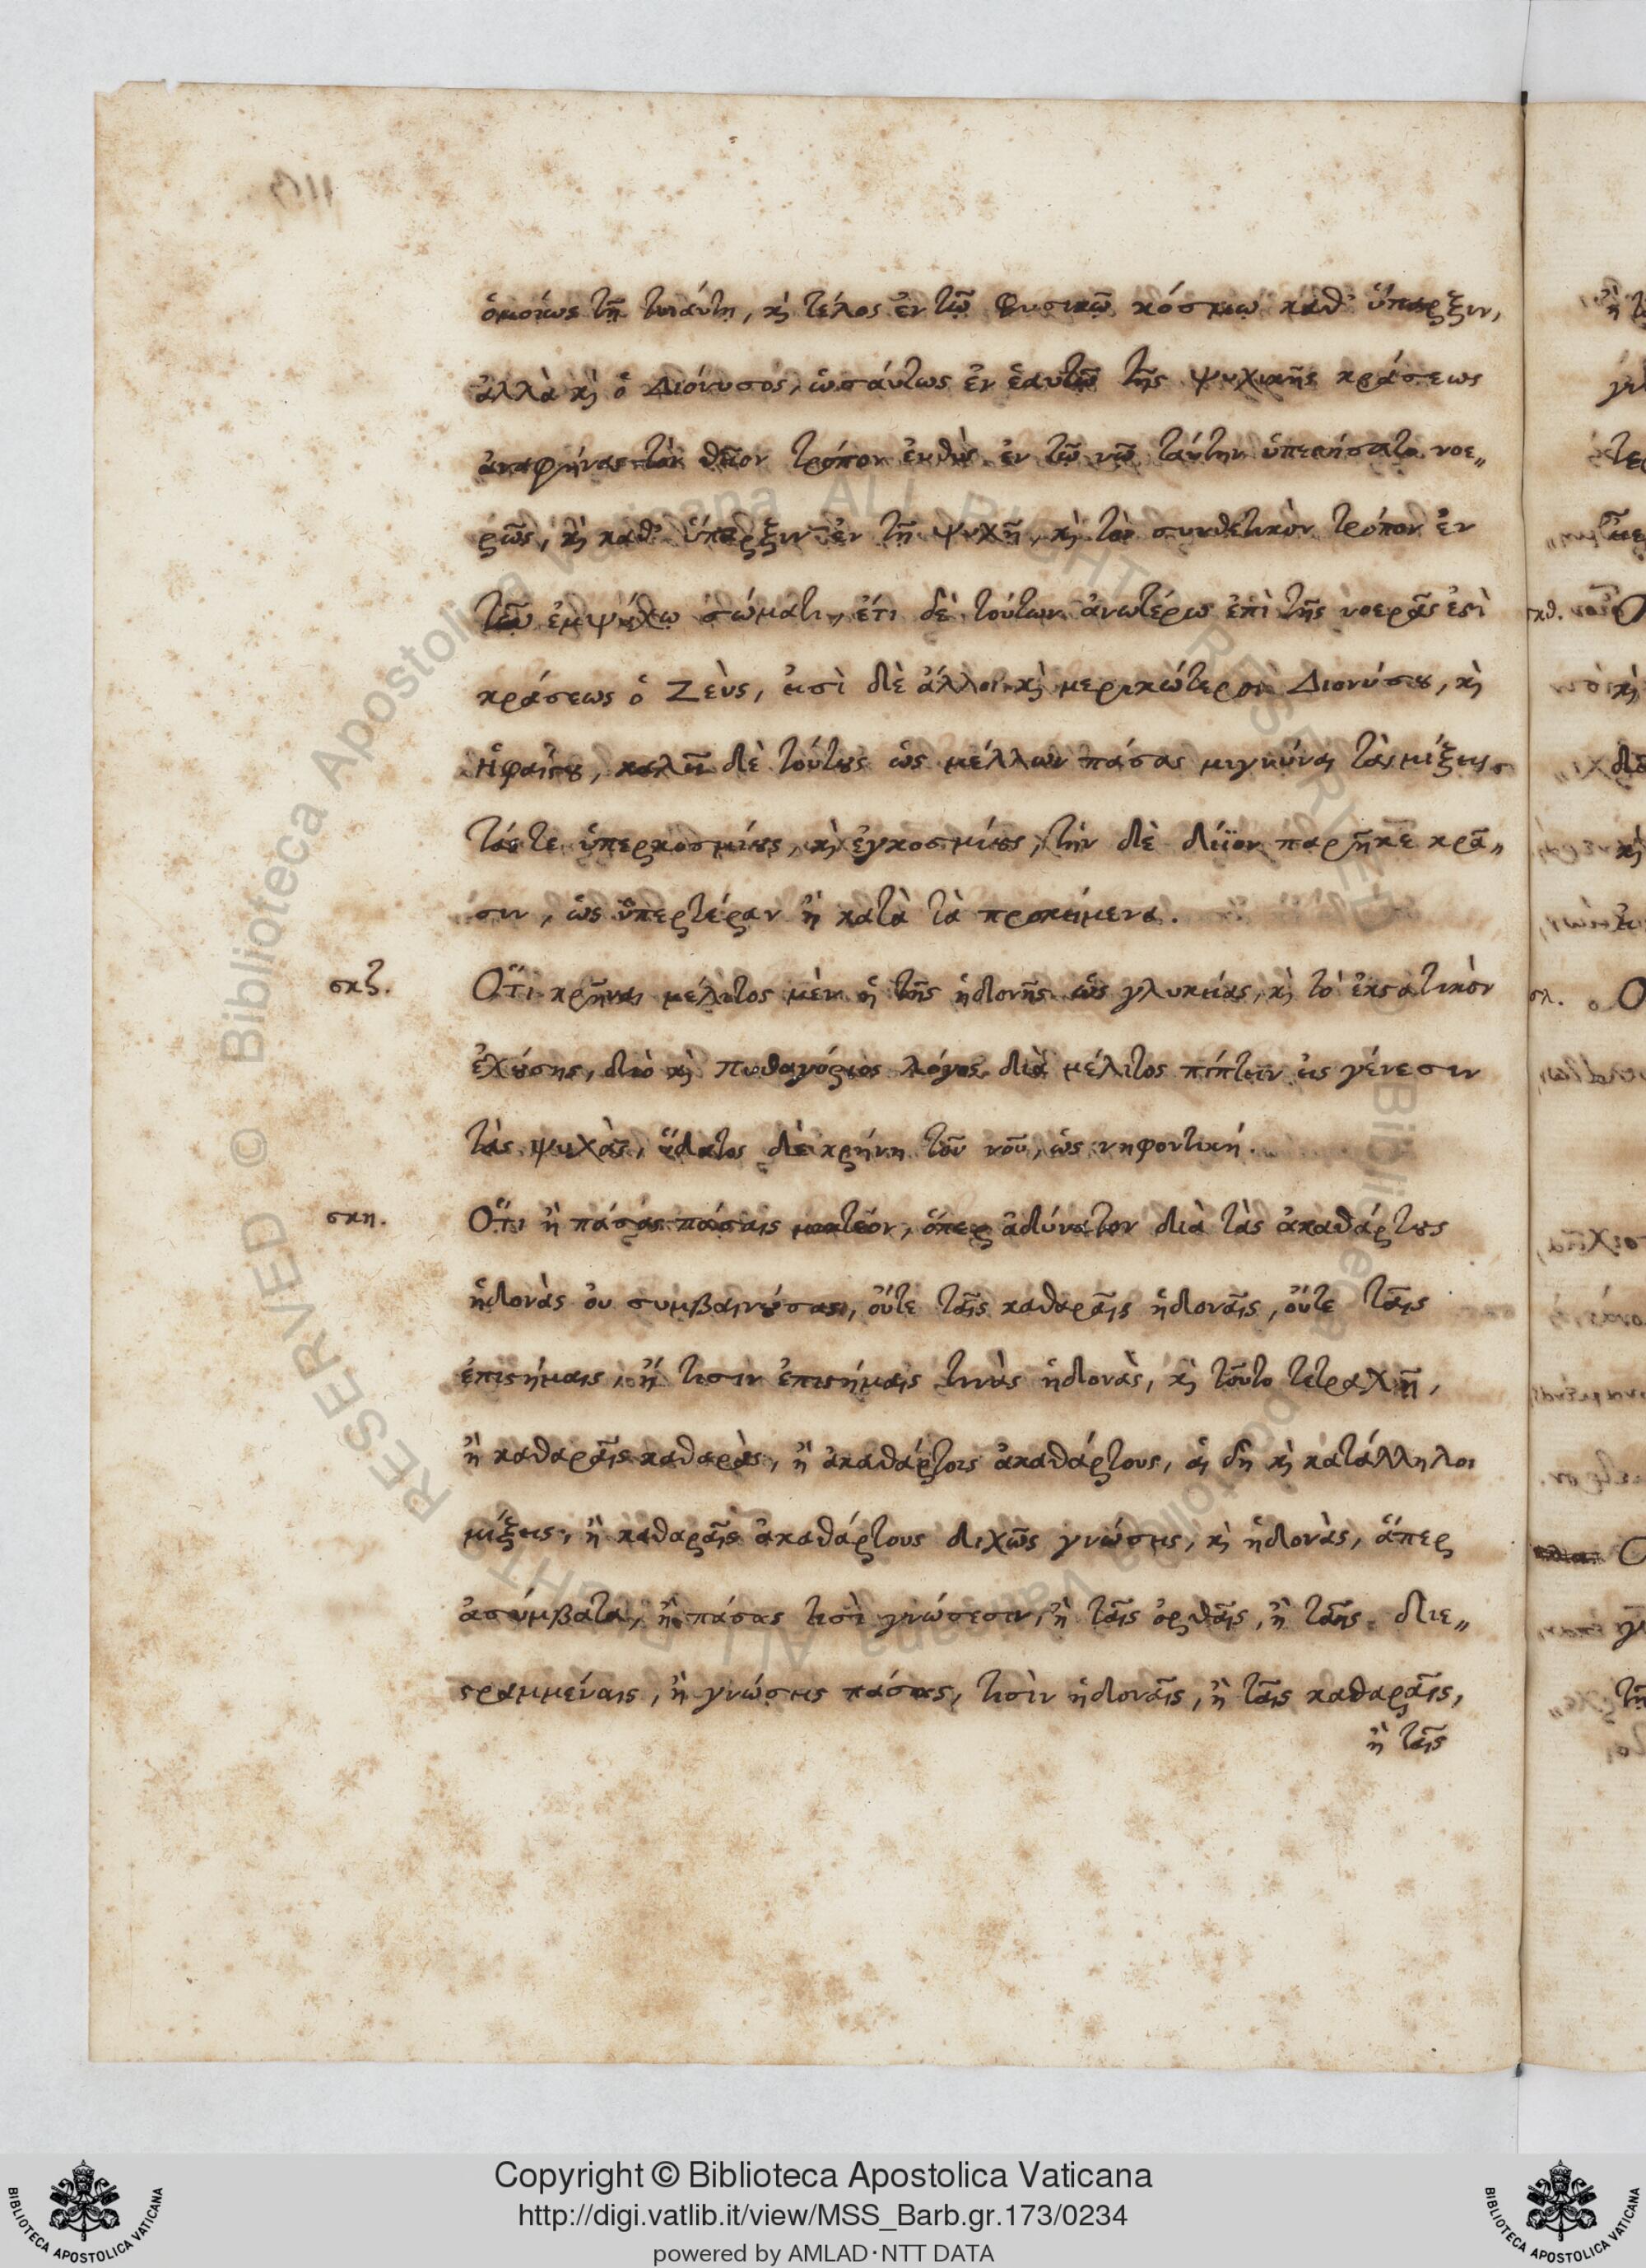 ὁμοίως τῇ τοιάυτῃ, κὶ τέλος ἐν τῷ Φυσικῷ κόσμῳ καθ' ὕπαρξιν,
ἀλλὰ κὶ ὁ Διόνυσος, ὡσάυτως ἐν ἑαυτῷ τῆς ψυχικῆς κράσεως
ἀναφήνας τὸν θεῖον τρόπον ἐυθὺς ἐν τῷ νῷ ταύτην ὑπεστήσατο νοε„
ρῶς, κὶ καθ' ὕπαρξιν ἐν τῇ ψυχῇ, κὶ τὸν συνθετικὸν τρόπον ἐν
τῷ ἐμψύχῳ σώματι, ἔτι δὲ τούτων ἀνωτέρω ἐπὶ τῆς νοερᾶς ἐστὶ
κράσεως ὁ Ζεὺς, εἰσὶ δὲ ἄλλοι κὶ μερικώτεροι Διονύσου, κὶ
Ηφαίστου, καλεῖ δὲ τούτους ὡς μέλλων πάσας μιγνύναι τὰς μίξεις
τάς τε ὑπερκοσμίους, κὶ ἐγκοσμίους, τὴν δὲ δίϊον παρῆκε κρᾶ„
σιν, ὡς ὑπερτέραν ἢ κατὰ τὰ προκείμενα.
σκζ. Οτι κρῆναι μέλιτος μὲν ἡ τῆς ἡδονῆς ὡς γλυκείας, κὶ τὸ ἐκστατικὸν
ἐχούσης, διὸ κὶ Πυθαγόρειος λόγος διὰ μέλιτος πίπτειν εἰς γένεσιν
τὰς ψυχὰς, ὕδατος δὲ κρήνη τοῦ νοῦ, ὡς νηφοντική.
σκη. Οτι ἢ πάσας πάσαις μικτέον, ὅπερ ἀδύνατον διὰ τὰς ἀκαθάρτους
ἡδονὰς ὀυ συμβαινούσας, οὔτε ταῖς καθαραῖς ἡδοναῖς, οὔτε ταῖς
ἐπιστήμαις, ἤ τισιν ἐπιστήμαις τινὰς ἡδονὰς, κὶ τοῦτο τετραχῇ,
ἢ καθαραῖς καθαρὰς, ἢ ἀκαθάρτοις ἀκαθάρτους, αἱ δὴ κὶ κατάλληλοι
μίξεις, ἢ καθαραῖς ἀκαθάρτους διχῶς γνώσεις, κὶ ἡδονὰς, ἅπερ
ἀσύμβατα, ἢ πάσας τισὶ γνώσεσιν, ἢ ταῖς ὀρθαῖς, ἢ ταῖς διε„
στραμμέναις, ἢ γνώσεις πάσας, τισὶν ἡδοναῖς, ἢ ταῖς καθαραῖς,
ἢ ταῖς
Copyright © Biblioteca Apostolica Vaticana
http://digi.vatlib.it/view/MSS_Barb.gr.173/0234
powered by AMLAD·NTT DATA